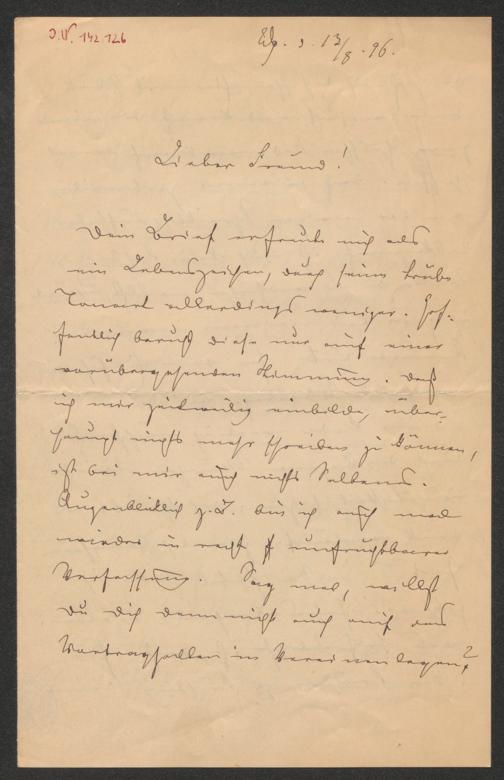 J.N. 142.126
Lpz. d. 13/8. 96.
Lieber Freund!
Dein Brief erfreute mich als
ein Lebenszeichen, durch seine trübe
Tonart allerdings weniger. Hof-
fentlich beruht diese nur auf einer
vorübergehenden Stimmung. Daß
ich mir zeitweilig einbilde, über-
haupt nichts mehr schreiben zu können,
ist bei mir auch nichts Seltenes.
Augenblicklich z. B. bin ich auch mal
wieder in recht unfruchtbarer
Verfassung. Sag mal, willst
Du Dich denn nicht auch auf das
Vortraghalten in Vereinen legen?